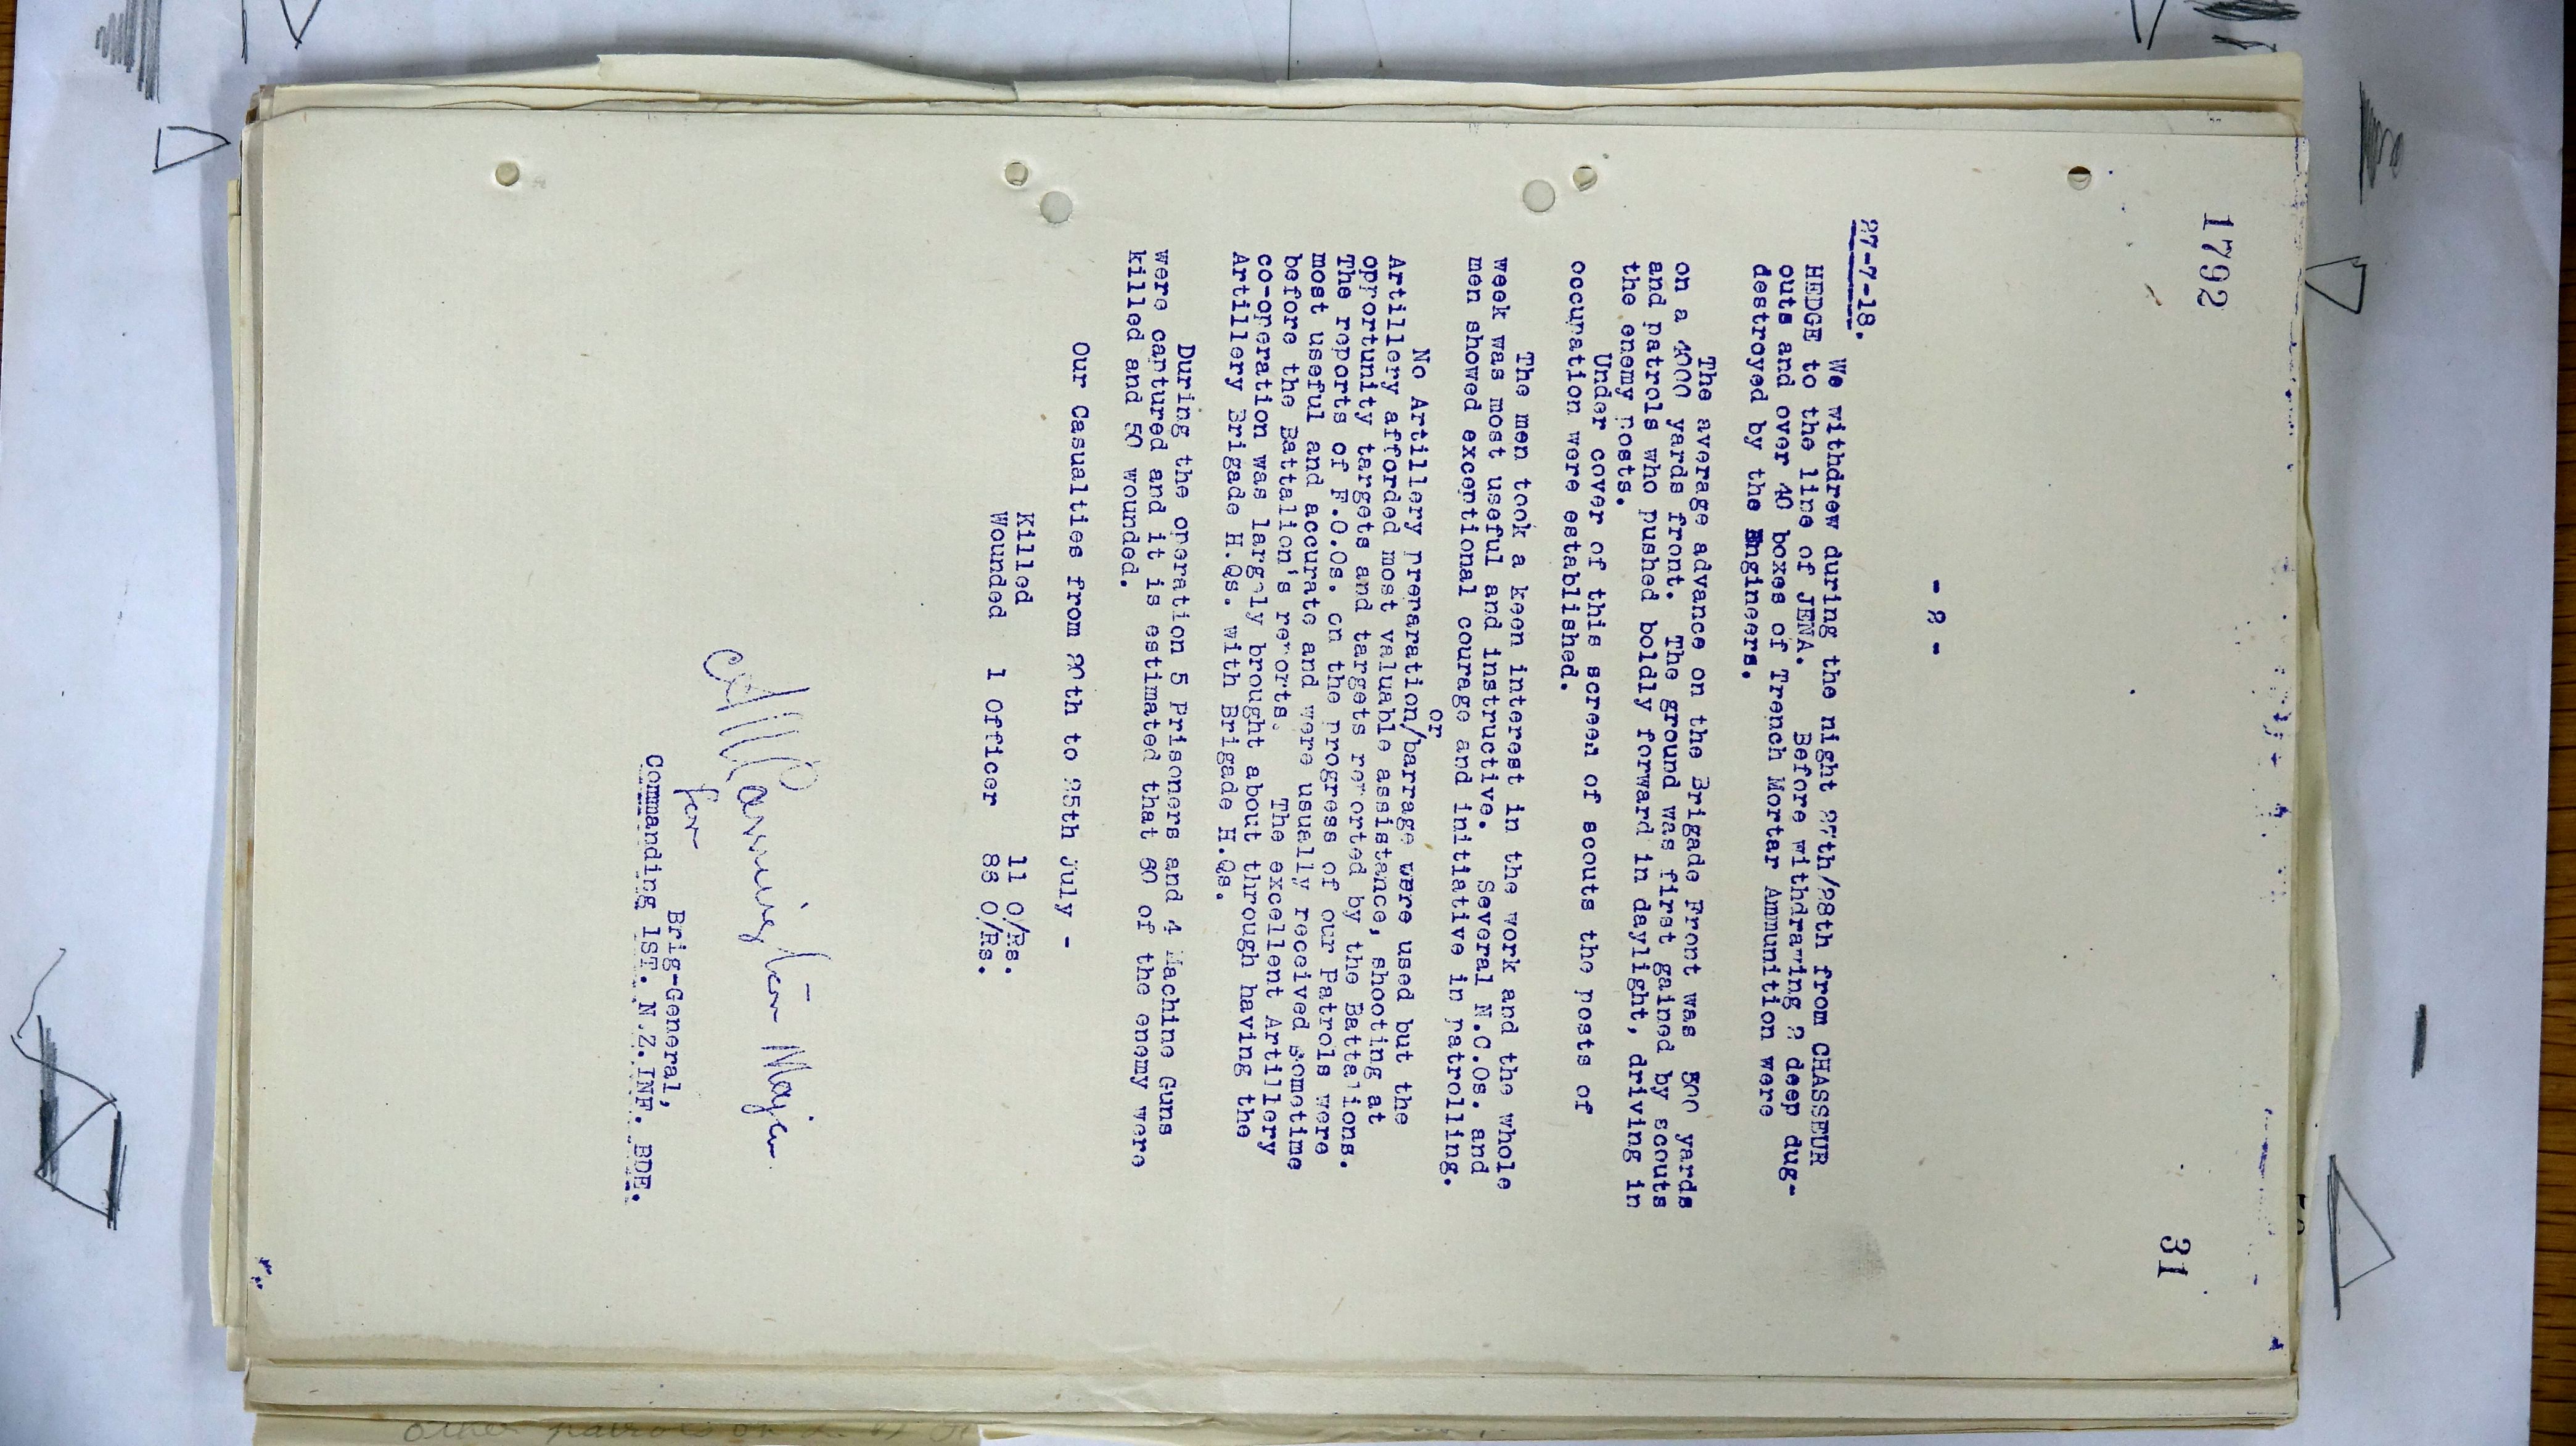 1792
31
- 2 -
27-7-18.
We withdrew during the night 27th/28th from CHASSEUR
HEDGE to the line of JENA. Before withdrawing 2 deep dug-
outs and over 40 boxes of Trench Mortar Ammunition were
destroyed by the Engineers.
The average advance on the Brigade Front was 500 yards
on a 4000 yards front. The ground was first gained by scouts
and patrols who pushed boldly forward in daylight, driving in
the enemy posts.
Under cover of this screen of scouts the posts of
occupation were established.
The men took a keen interest in the work and the whole
week was most useful and instructive. Several N.C.Os. and
men showed exceptional courage and initiative in patrolling.
or
No Artillery preparation/barrage were used but the
Artillery afforded most valuable assistance, shooting at
opportunity targets and targets reported by the Battalions.
The reports of F.O.Os. on the progress of our Patrols were
most useful and accurate and were usually received sometime
before the Battalion's reports. The excellent Artillery
co-operation was largely brought about through having the
Artillery Brigade H.Qs. with Brigade H.Qs.
During the operation 5 Prisoners and 4 Machine Guns
were captured and it is estimated that 60 of the enemy were
killed and 50 wounded.
Our Casualties from 20th to 25th July -
Killed 11 O/Rs.
Wounded 1 Officer 88 O/Rs.
Major
for
Brig-General,
Commanding 1ST. N.Z.INF. BDE.
other patrols on